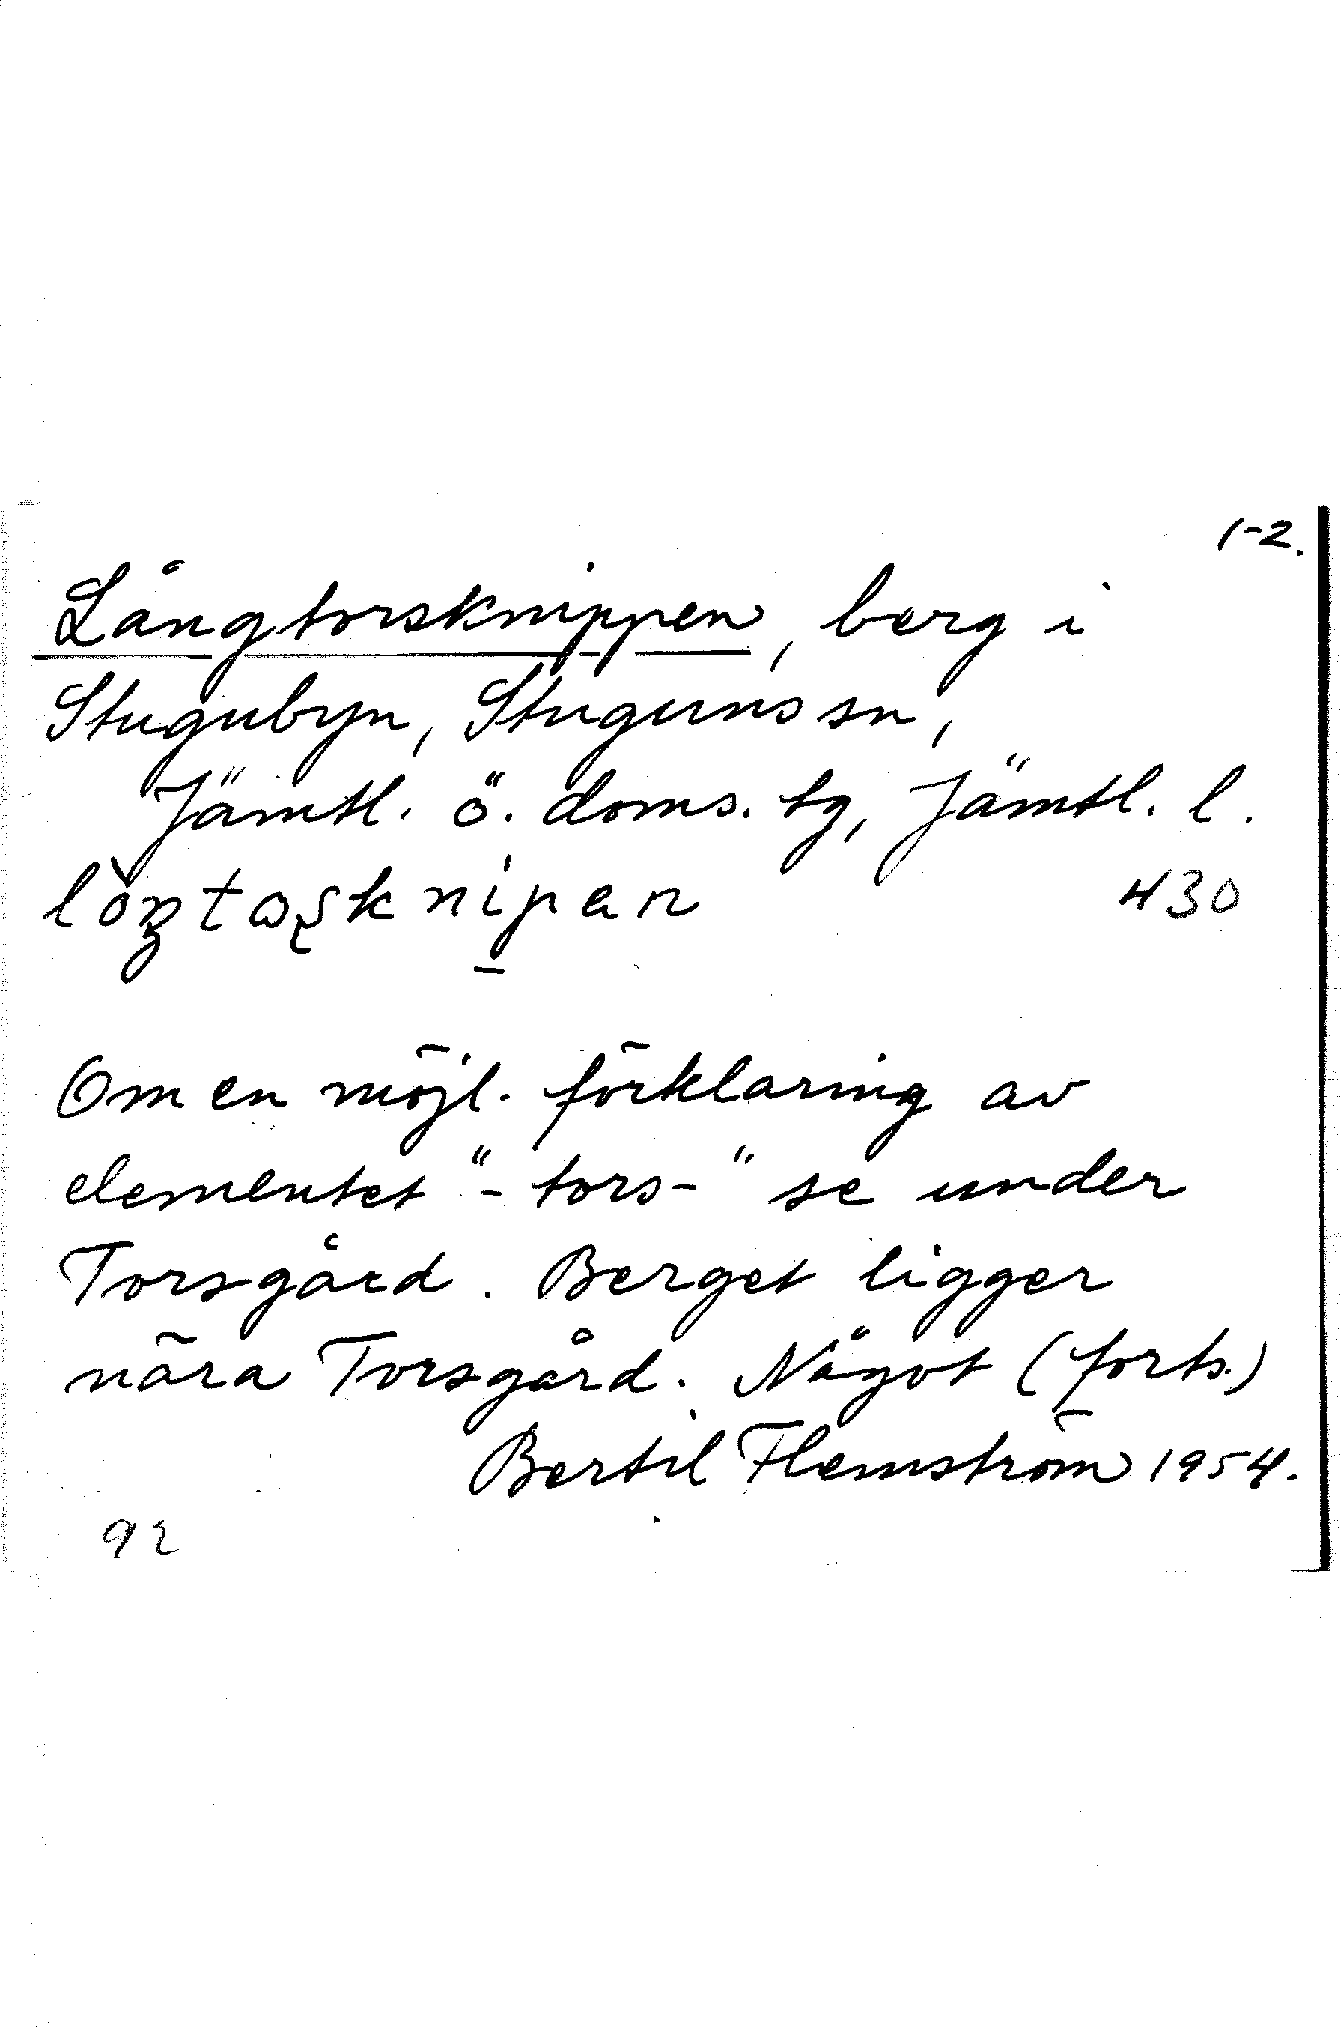 1-2.
Långtorsknippen, berg i
Stugubyn, Stuguns sn,
Jämtl. ö. doms. tg, Jämtl. l.
430
Om en möjl. förklaring av
elementet "-tors-" se under
Torsgård. Berget ligger
nära Torsgård. Något (forts.)
Bertil Flemström 1954.
92